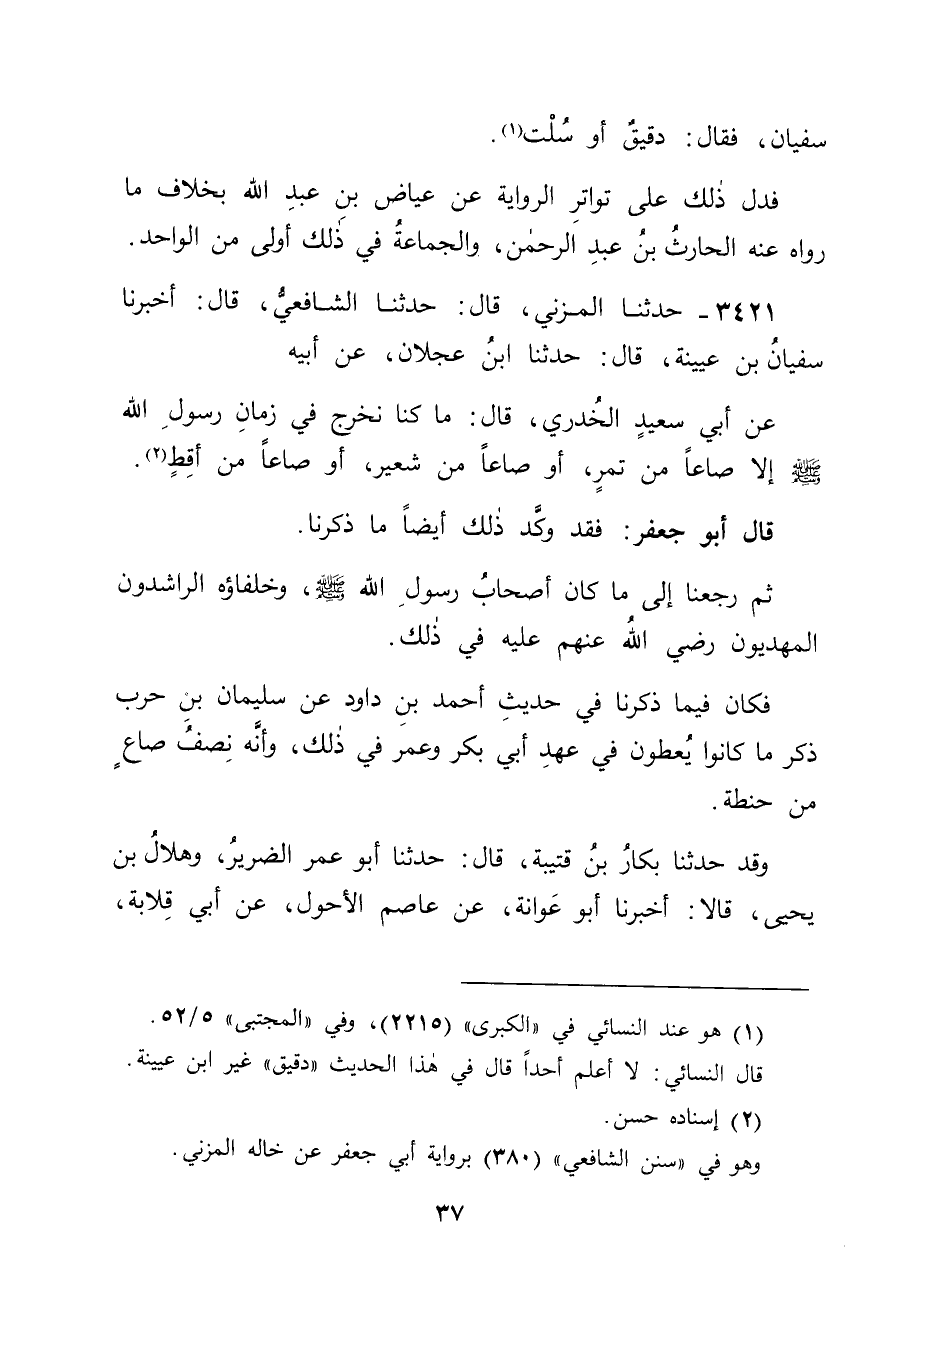 سفيان، فقال: دقيقٌ أو سُلْت(١).
فدل ذٰلك على تواترِ الرواية عن عياض بنِ عبدِ الله بخلاف ما
رواه عنه الحارثُ بنُ عبدِ الرحمٰن، والجماعةُ في ذٰلك أولى من الواحد.
٣٤٢١ - حدثنـا المـزني، قال: حدثنـا الشـافعيُّ، قال: أخبرنا
سفيانُ بن عيينة، قال: حدثنا ابنُ عجلان، عن أبيه
عن أبي سعيدٍ الخُدري، قال: ما كنا نخرج في زمانِ رسولِ الله
ﷺ إلا صاعاً من تمرٍ، أو صاعاً من شعير، أو صاعاً من أقِطٍ(٢).
قال أبو جعفر: فقد وكَّد ذٰلك أيضاً ما ذكرنا.
ثم رجعنا إلى ما كان أصحابُ رسولِ الله ﷺ، وخلفاؤه الراشدون
المهديون رضي اللهُ عنهم عليه في ذٰلك.
فكان فيما ذكرنا في حديثِ أحمد بنِ داود عن سليمان بنِ حرب
ذكر ما كانوا يُعطون في عهدِ أبي بكر وعمرَ في ذٰلك، وأنَّه نِصفُ صاعٍ
من حنطة.
وقد حدثنا بكارُ بنُ قتيبة، قال: حدثنا أبو عمر الضريرُ، وهلالُ بن
يحيى، قالا: أخبرنا أبو عَوانة، عن عاصم الأحول، عن أبي قِلابة،
(١) هو عند النسائي في «الكبرى» (٢٢١٥)، وفي «المجتبى» ٥٢/٥.
قال النسائي: لا أعلم أحداً قال في هٰذا الحديث «دقيق» غير ابن عيينة.
(٢) إسناده حسن.
وهو في «سنن الشافعي» (٣٨٠) برواية أبي جعفر عن خاله المزني.
٣٧